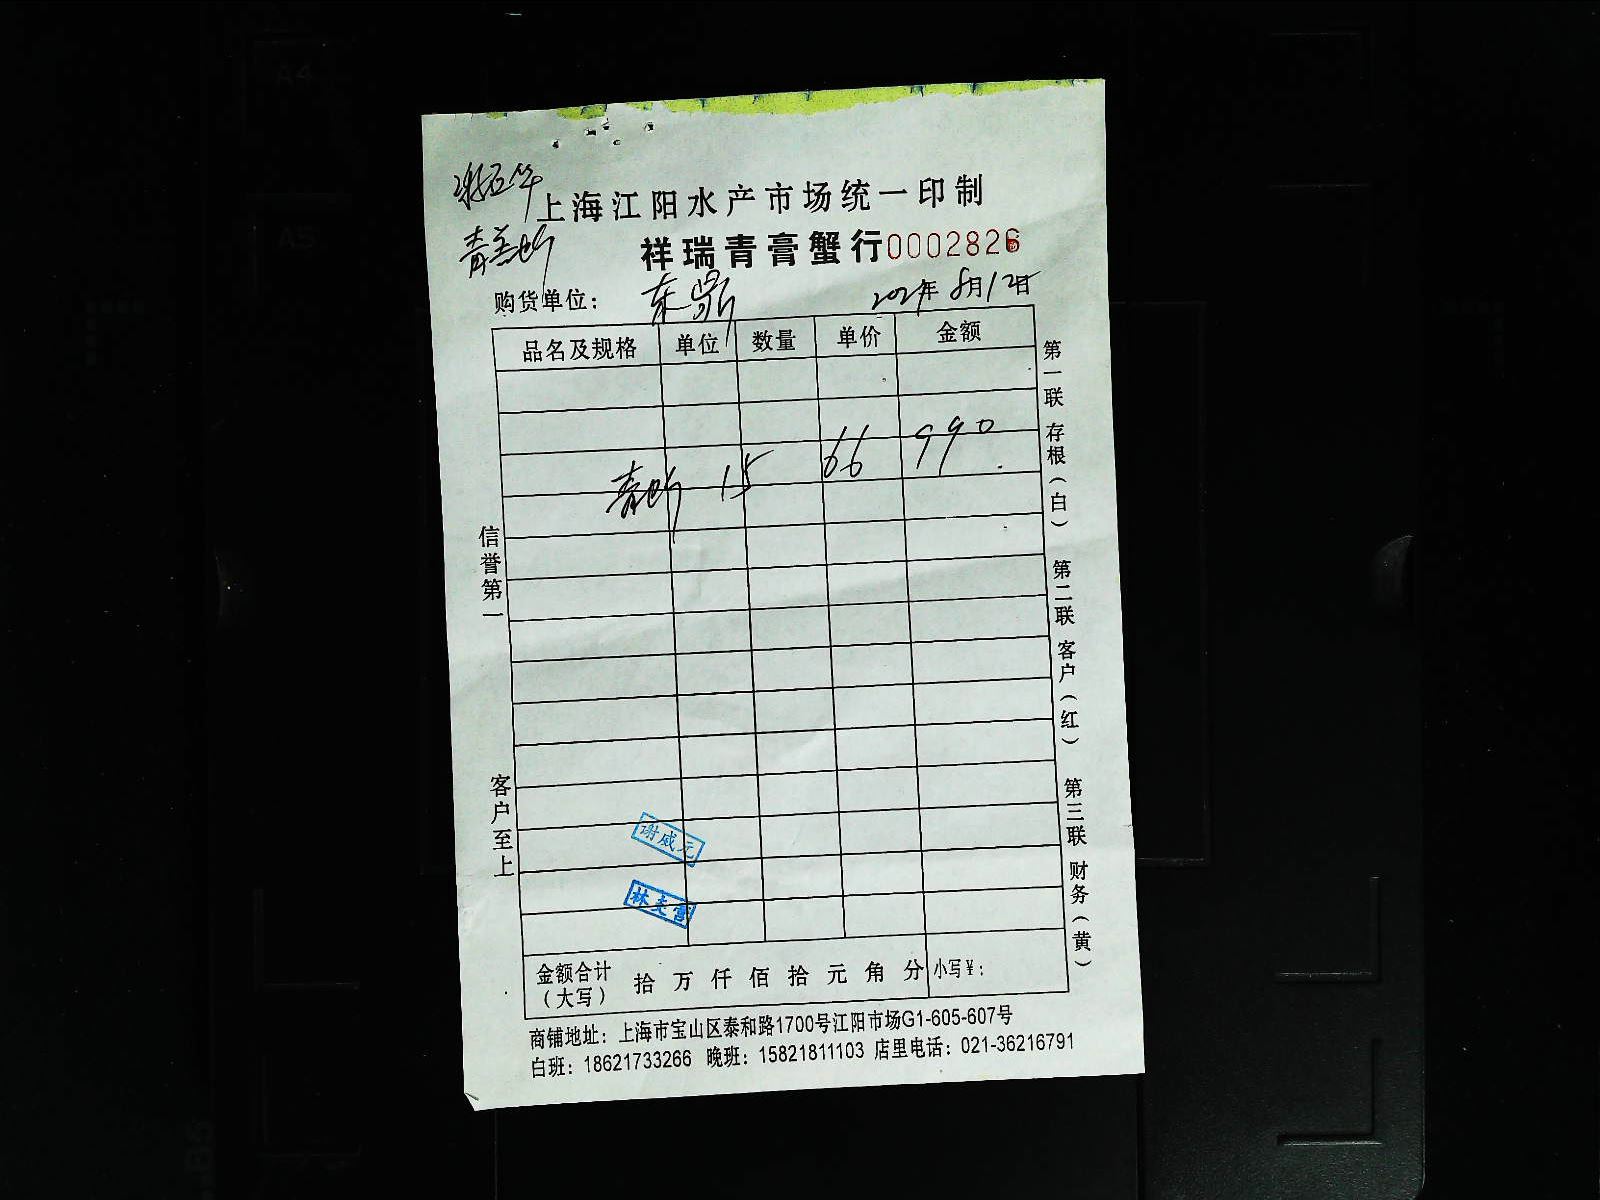 上海江阳水产市场统一印制
祥瑞青膏蟹行0002826
购货单位： 东鼎 2021年8月12日
品名及规格 单位 数量 单价 金额
青 15 66 990
信誉第一
客户至上
第一联 存根（白） 第二联 客户（红） 第三联 财务（黄）
谢威元
林文营
金额合计（大写） 拾 万 仟 佰 拾 元 角 分 小写¥：
商铺地址：上海市宝山区泰和路1700号江阳市场G1-605-607号
白班：18621733266 晚班：15821811103 店里电话：021-36216791
A4
A5
B5